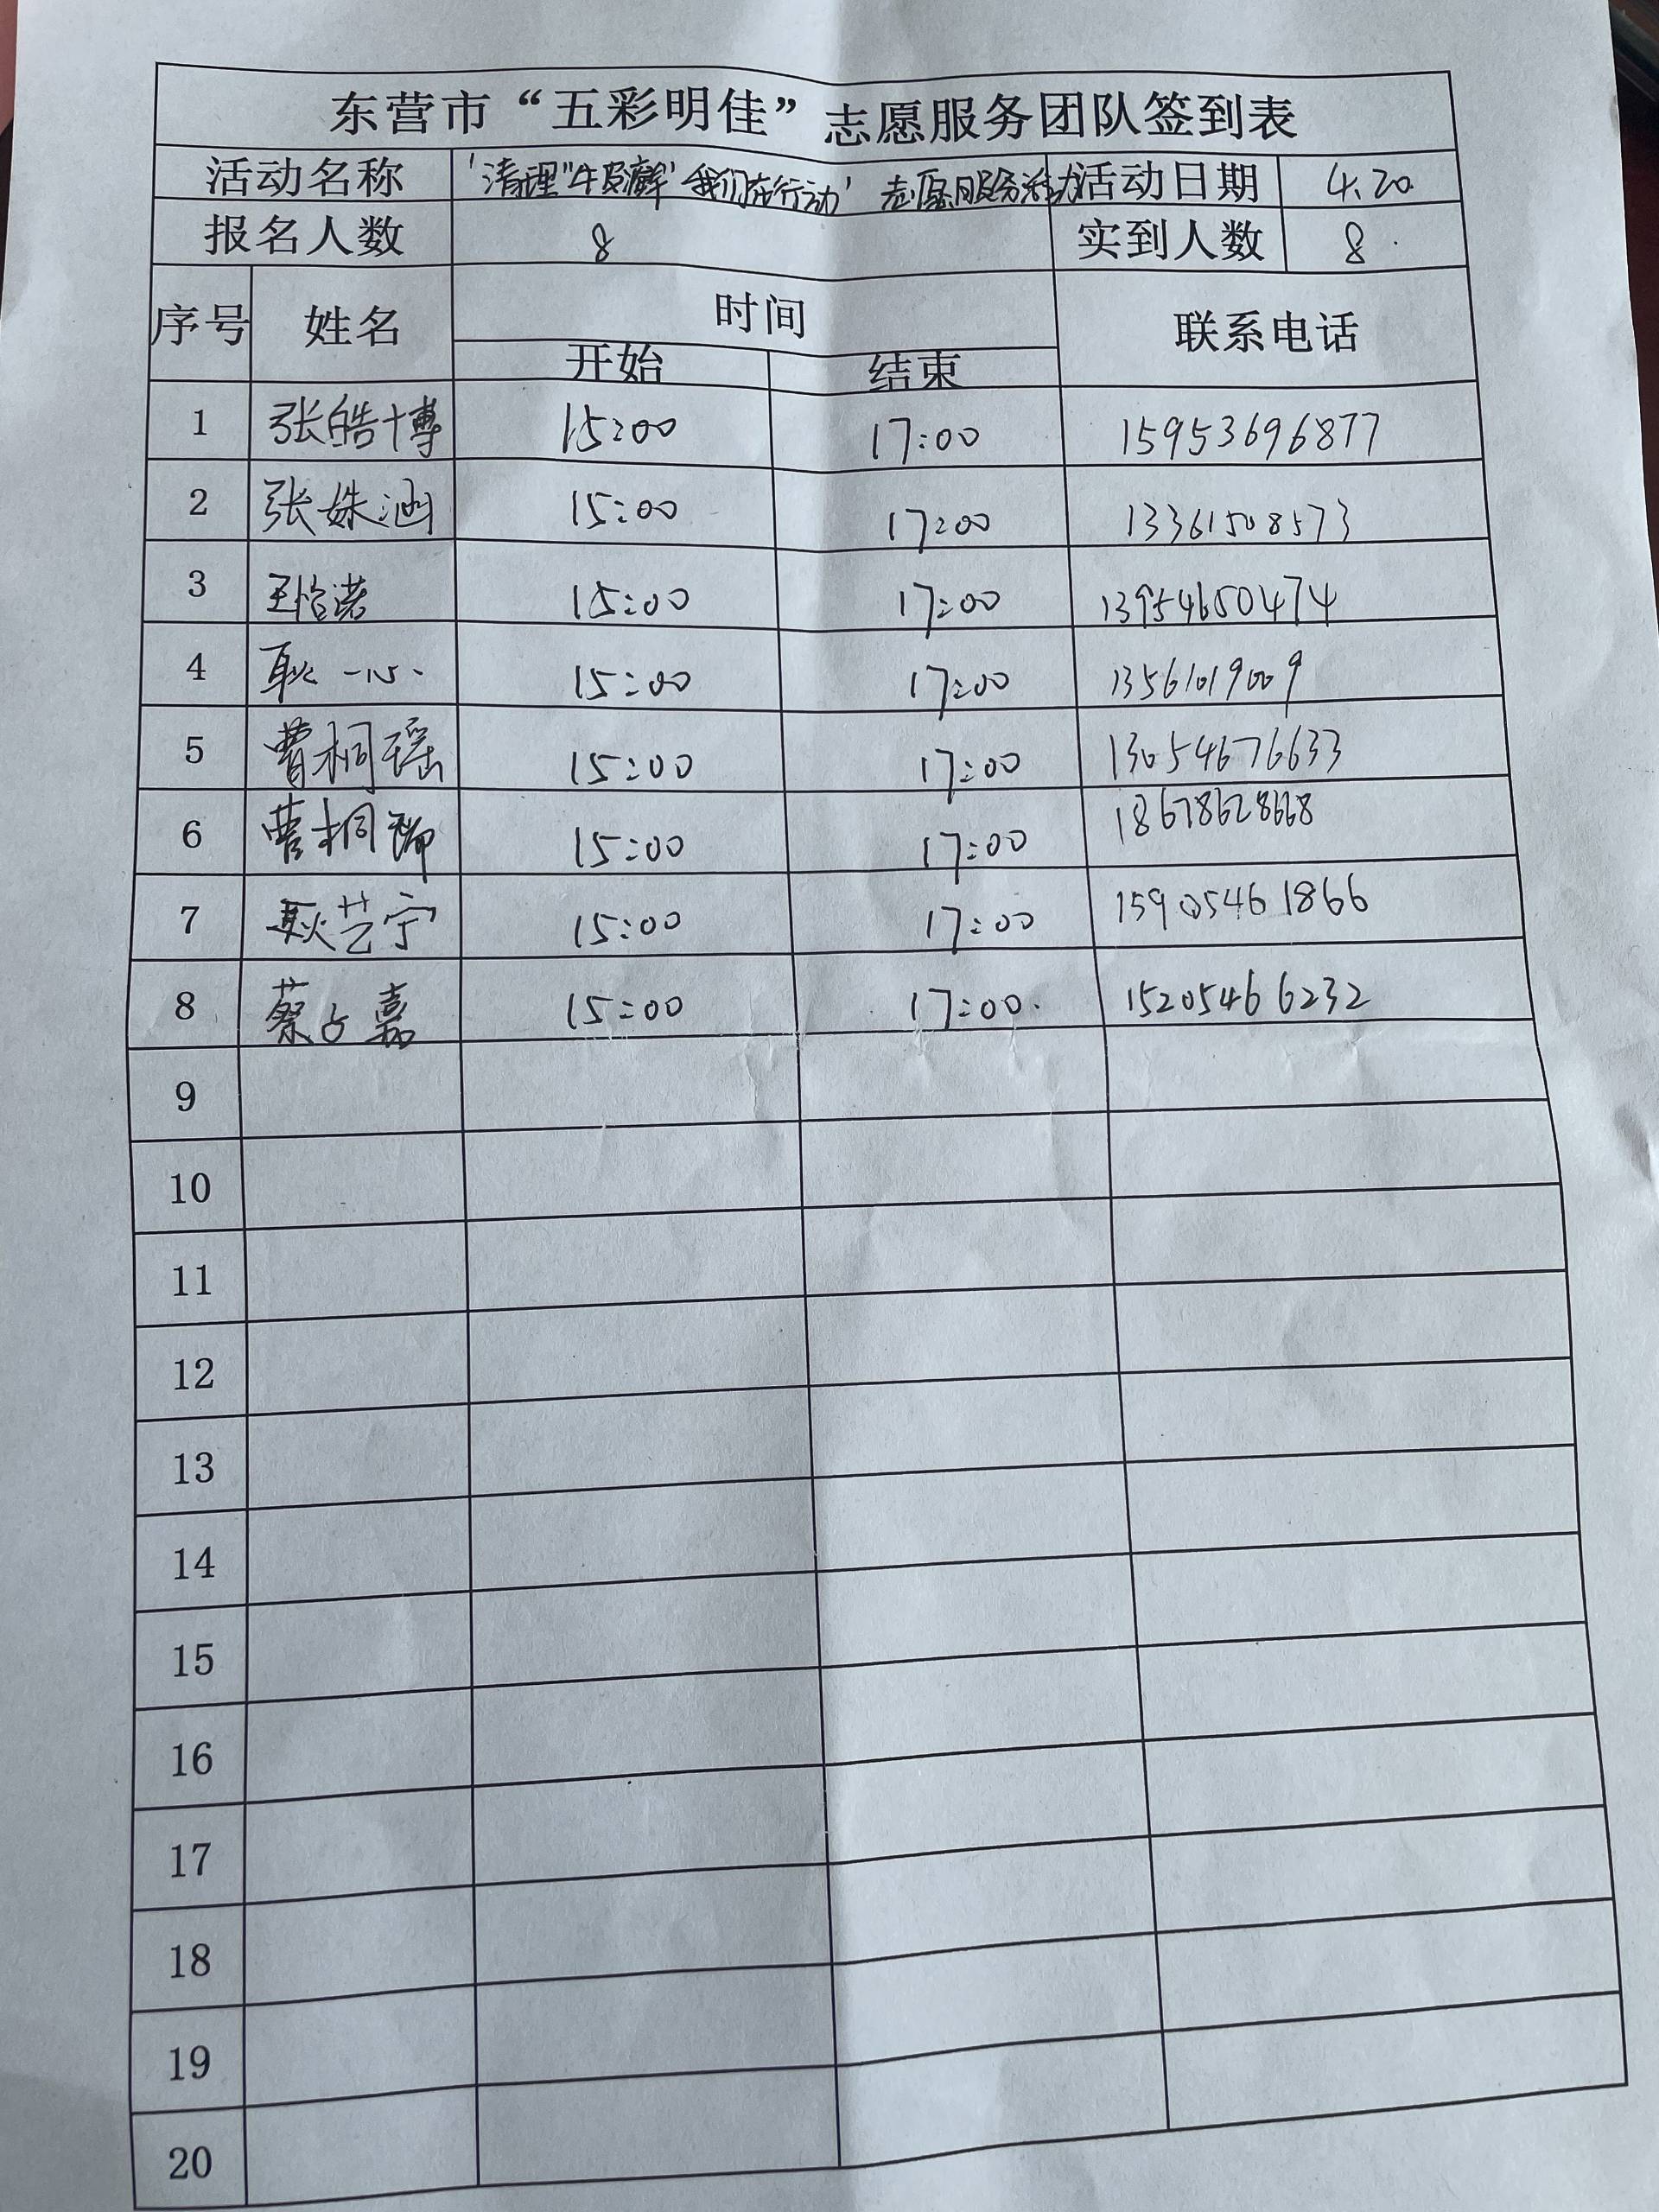 东营市“五彩明佳”志愿服务团队签到表
活动名称 '清理"牛皮癣'我们在行动' 志愿服务活动 活动日期 4.20
报名人数 8 实到人数 8
序号 姓名 时间 联系电话
开始 结束
1 张皓博 15:00 17:00 15953696877
2 张姝涵 15:00 17:00 13361508573
3 王怡诺 15:00 17:00 13954650474
4 耿一心 15:00 17:00 13561019009
5 曹桐瑶 15:00 17:00 13054676633
6 曹桐 15:00 17:00 18678628668
7 耿艺宁 15:00 17:00 15905461866
8 蔡占嘉 15:00 17:00. 15205466232
9
10
11
12
13
14
15
16
17
18
19
20